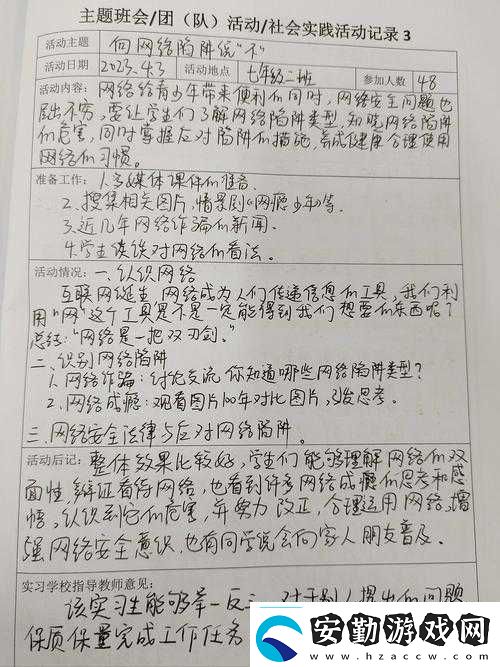 主题班会/团（队）活动/社会实践活动记录 3
活动主题 向网络陷阱说"不"
活动日期 2023.4.3 活动地点 七年级二班 参加人数 48
活动内容：网络给青少年带来便利的同时，网络安全问题也
层出不穷，要让学生们了解网络陷阱类型，知晓网络陷阱
的危害，同时掌握应对陷阱的措施，养成健康合理使用
网络的习惯。
准备工作：1.多媒体课件的准备.
2.搜集相关图片，情景剧《网瘾少年》等.
3.近几年网络诈骗的新闻.
4.学生谈谈对网络的看法。
活动情况：一.认识网络
互联网诞生，网络成为人们传递信息的工具，我们利
用"网"这个工具是不是一定能得到我们想要的东西呢？
总结："网络是一把双刃剑."
二.识别网络陷阱
1.网络诈骗：讨论交流 你知道哪些网络陷阱类型？
2.网络成瘾：观看图片100年对比图片，引发思考。
三.网络安全法律与应对网络陷阱。
活动后记：整体效果比较好，学生们能够理解网络的双
面性，辩证看待网络，也看到许多网络成瘾的思考和感
悟，认识到它的危害，并努力改正，合理运用网络，增
强网络安全意识，也有同学说会向家人朋友普及。
实习学校指导教师意见：
该实习生能够举一反三，对于别人提出的问题
保质保量完成工作任务
安勤游戏网